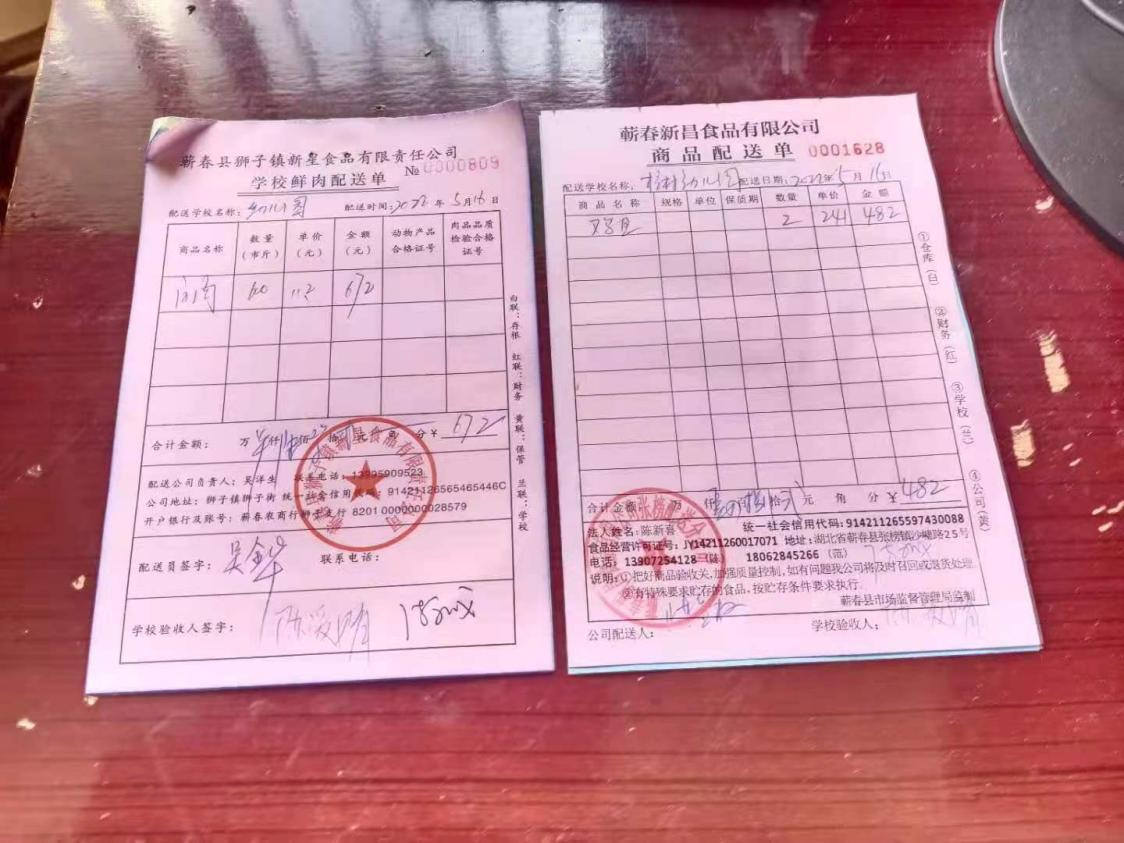 蕲春县狮子镇新星食品有限责任公司
学校鲜肉配送单 № 0000809
配送学校名称: 幼儿园 配送时间: 2022 年 5月16日
商品名称 数量(市斤) 单价(元) 金额(元) 动物产品合格证号 肉品品质检验合格证号
肉 60 11.2 672
白联:存根 红联:财务 黄联:保管 兰联:学校
合计金额: 万 仟 佰 拾 元 角 分 ¥ 672
配送公司负责人: 吴洋生 联系电话: 13995909523
公司地址: 狮子镇狮子街 统一社会信用代码: 91421126565465446C
开户银行及账号: 蕲春农商行狮子支行 82010000000028579
配送员签字: 联系电话:
学校验收人签字:
蕲春新昌食品有限公司
商品配送单 0001628
配送学校名称: 幼儿园 配送日期: 2022年5月16日
商品名称 规格 单位 保质期 数量 单价 金额
2 241 482
①仓库(白) ②财务(红) ③学校(兰) ④公司(黄)
合计金额: 万 仟 佰 拾 元 角 分 ¥ 482
法人姓名: 陈新喜 统一社会信用代码: 914211265597430088
食品经营许可证号: JY14211260017071 地址: 湖北省蕲春县张榜镇沙塘路25号
电话: 13907254128 18062845266
说明: ①把好商品验收关,加强质量控制,如有问题我公司将及时召回或退货处理
②有特殊要求贮存的食品,按贮存条件要求执行.
蕲春县市场监督管理局监制
公司配送人: 学校验收人: